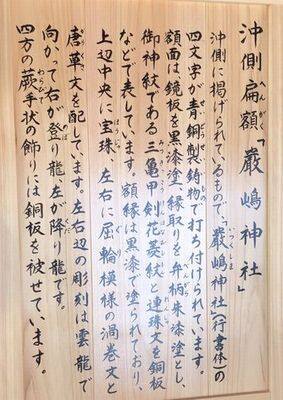 沖側扁額「嚴嶋神社」
沖側に掲げられているもので、「嚴嶋神社（行書体）」の
四文字が青銅製鋳物で打ち付けられています。
額面は、鏡板を黒漆塗、縁取りを弁柄朱漆塗とし、
御神紋である三亀甲剣花菱紋と連珠文を銅板
などで表しています。額縁は黒漆で塗られており、
上辺中央に宝珠、左右に屈輪模様の渦巻文と
唐草文を配しています。左右辺の彫刻は雲龍で
向かって右が登り龍、左が降り龍です。
四方の蕨手状の飾りには銅板を被せています。